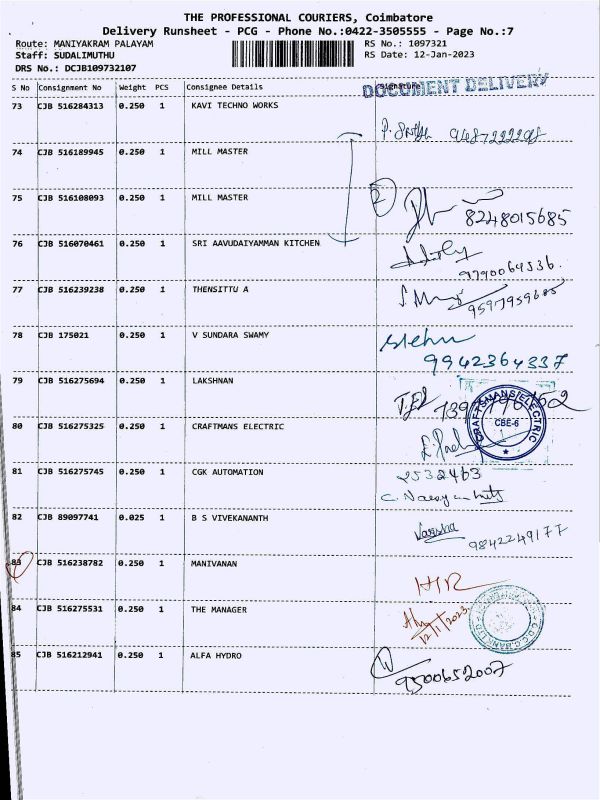 THE PROFESSIONAL COURIERS, Coimbatore
Delivery Runsheet - PCG - Phone No.:0422-3505555 - Page No.:7
Route: MANIYAKRAM PALAYAM
RS No.: 1097321
Staff: SUDALIMUTHU
RS Date: 12-Jan-2023
DRS No.: DCJB109732107
S No Consignment No Weight PCS Consignee Details Signature
DOCUMENT DELIVERY
73 CJB 516284313 0.250 1 KAVI TECHNO WORKS
74 CJB 516189945 0.250 1 MILL MASTER
75 CJB 516108093 0.250 1 MILL MASTER
2
8248015685
76 CJB 516070461 0.250 1 SRI AAVUDAIYAMMAN KITCHEN
9790064536.
77 CJB 516239238 0.250 1 THENSITTU A
9597959685
78 CJB 175021 0.250 1 V SUNDARA SWAMY
9942364337
79 CJB 516275694 0.250 1 LAKSHNAN
80 CJB 516275325 0.250 1 CRAFTMANS ELECTRIC
CRAFTSMANS ELECTRIC
CBE-6
81 CJB 516275745 0.250 1 CGK AUTOMATION
2532463
82 CJB 89097741 0.025 1 B S VIVEKANANTH
Varsha
9842249177
83 CJB 516238782 0.250 1 MANIVANAN
84 CJB 516275531 0.250 1 THE MANAGER
12/1/2023.
85 CJB 516212941 0.250 1 ALFA HYDRO
9500652007